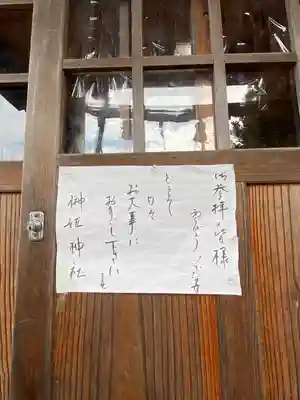 御参拝の皆様
ありがとうございます
どうぞ
日々
お大事に
お過し下さいませ
榊姫神社